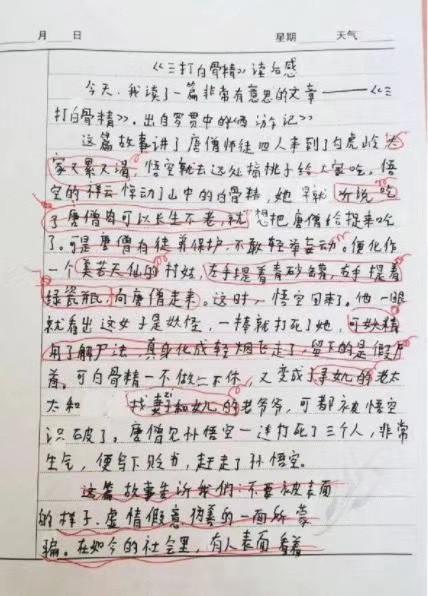 月 日 星期 天气
《三打白骨精》读后感
今天,我读了一篇非常有意思的文章——《三
打白骨精》,出自罗贯中的《西游记》
这篇故事讲了唐僧师徒四人来到了白虎岭大
家又累又渴,悟空就去远处摘桃子给大家吃,悟
空的祥云惊动了山中的白骨精,她早就听说吃
了唐僧肉可以长生不老,就想把唐僧给捉来吃
了。可是唐僧有徒弟保护,不敢轻举妄动。便化作
一个美若天仙的村姑,左手提着青砂罐,右手提着
绿瓷瓶,向唐僧走来。这时,悟空回来了。他一眼
就看出这女子是妖怪,一棒就打死了她,可妖精
用了解尸法,真身化成轻烟飞走了,留下的是假尸
首。可白骨精一不做二不休,又变成了寻女儿的老太
太和 找妻子和女儿的老爷爷,可都被悟空
识破了。唐僧见孙悟空一连打死了三个人,非常
生气,便写下贬书,赶走了孙悟空。
这篇故事告诉我们:不要被表面
的样子、虚情假意伪善的一面所蒙
骗。在如今的社会里,有人表面看着